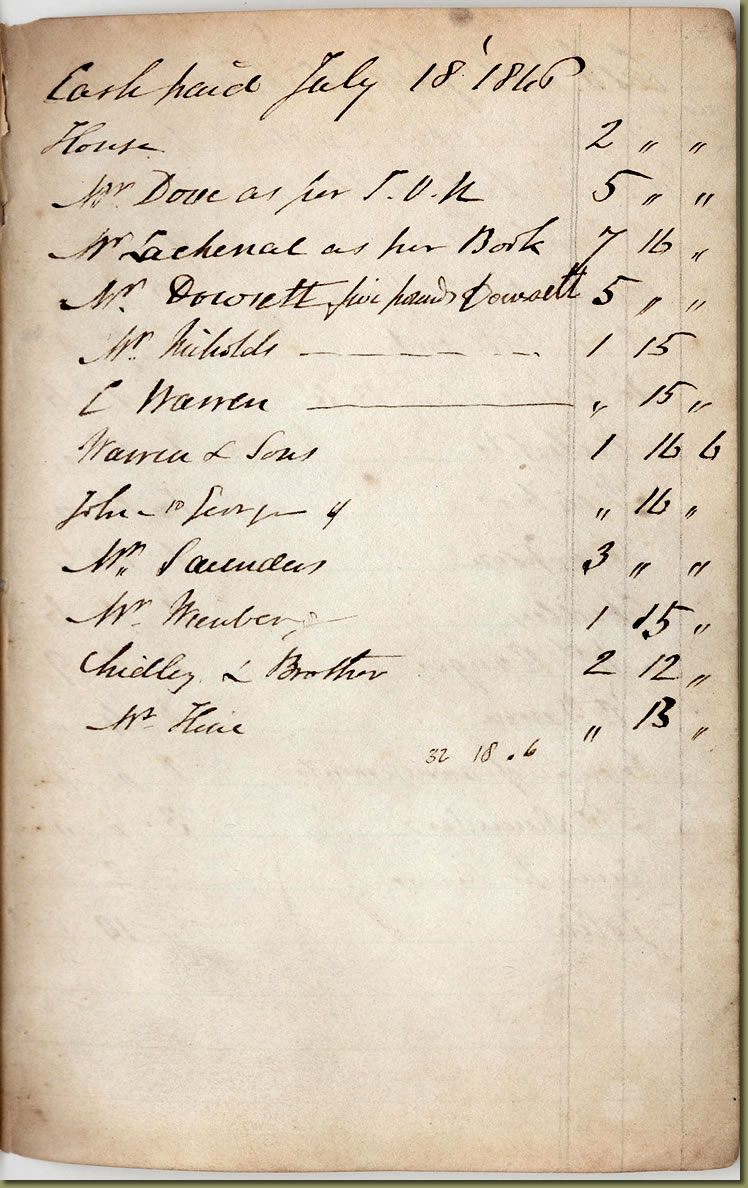 Cash paid July 18 1846
House 2 " "
Mr Dove as per I.O.U 5 " "
Mr Lachenal as per Book 7 16 "
Mr Dowsett five pounds Dowsett 5 " "
Mr Nicholds — — — — 1 15
C Warren ——— " 15 "
Warren & Sons 1 16 6
John George " 16 "
Mr Saunders 3 " "
Mr 1 15 "
Chidley & Brother 2 12 "
Mr Hine " 13 "
32 18 . 6